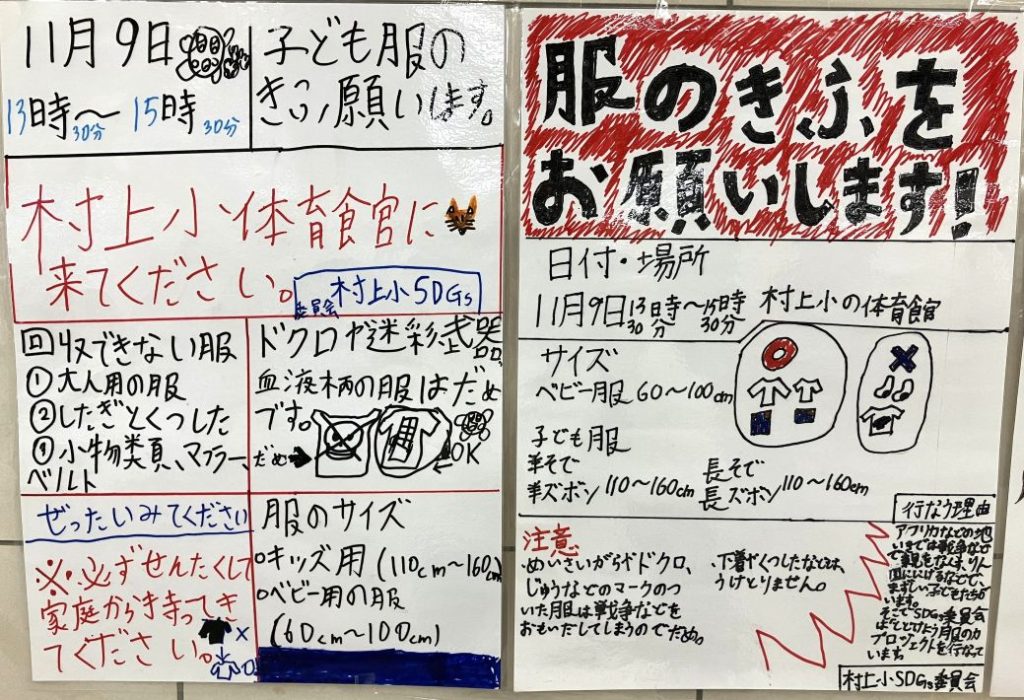 11月9日
13時30分～15時30分
子ども服の
きふ、お願いします。
村上小体育館に
来てください。
村上小SDGs
委員会
回収できない服
①大人用の服
②したぎとくつした
③小物類、マフラー、
ベルト
ドクロや迷彩、武器、
血液柄の服はだめ
です。
だめ
OK
ぜったいみてください
※必ずせんたくして
家庭から持ってき
てください。
服のサイズ
○キッズ用(110cm～160cm)
○ベビー用の服
(60cm～100cm)
服のきふを
お願いします!
日付・場所
11月9日13時30分～15時30分 村上小の体育館
サイズ
ベビー服 60～100cm
子ども服
半そで
半ズボン 110～160cm
長そで
長ズボン 110～160cm
注意
・めいさいがらやドクロ、
じゅうなどのマークのつ
いた服は戦争などを
おもいだしてしまうのでだめ。
・下着やくつしたなどは、
うけとりません。
行なう理由
アフリカなどの地
いきでは戦争などで
家をなくし、りん
国ににげるなどで、
まずしい子どもたちが
います。
そこでSDGs委員会
はとどけよう服の力
プロジェクトを行なって
います
村上小SDGs委員会